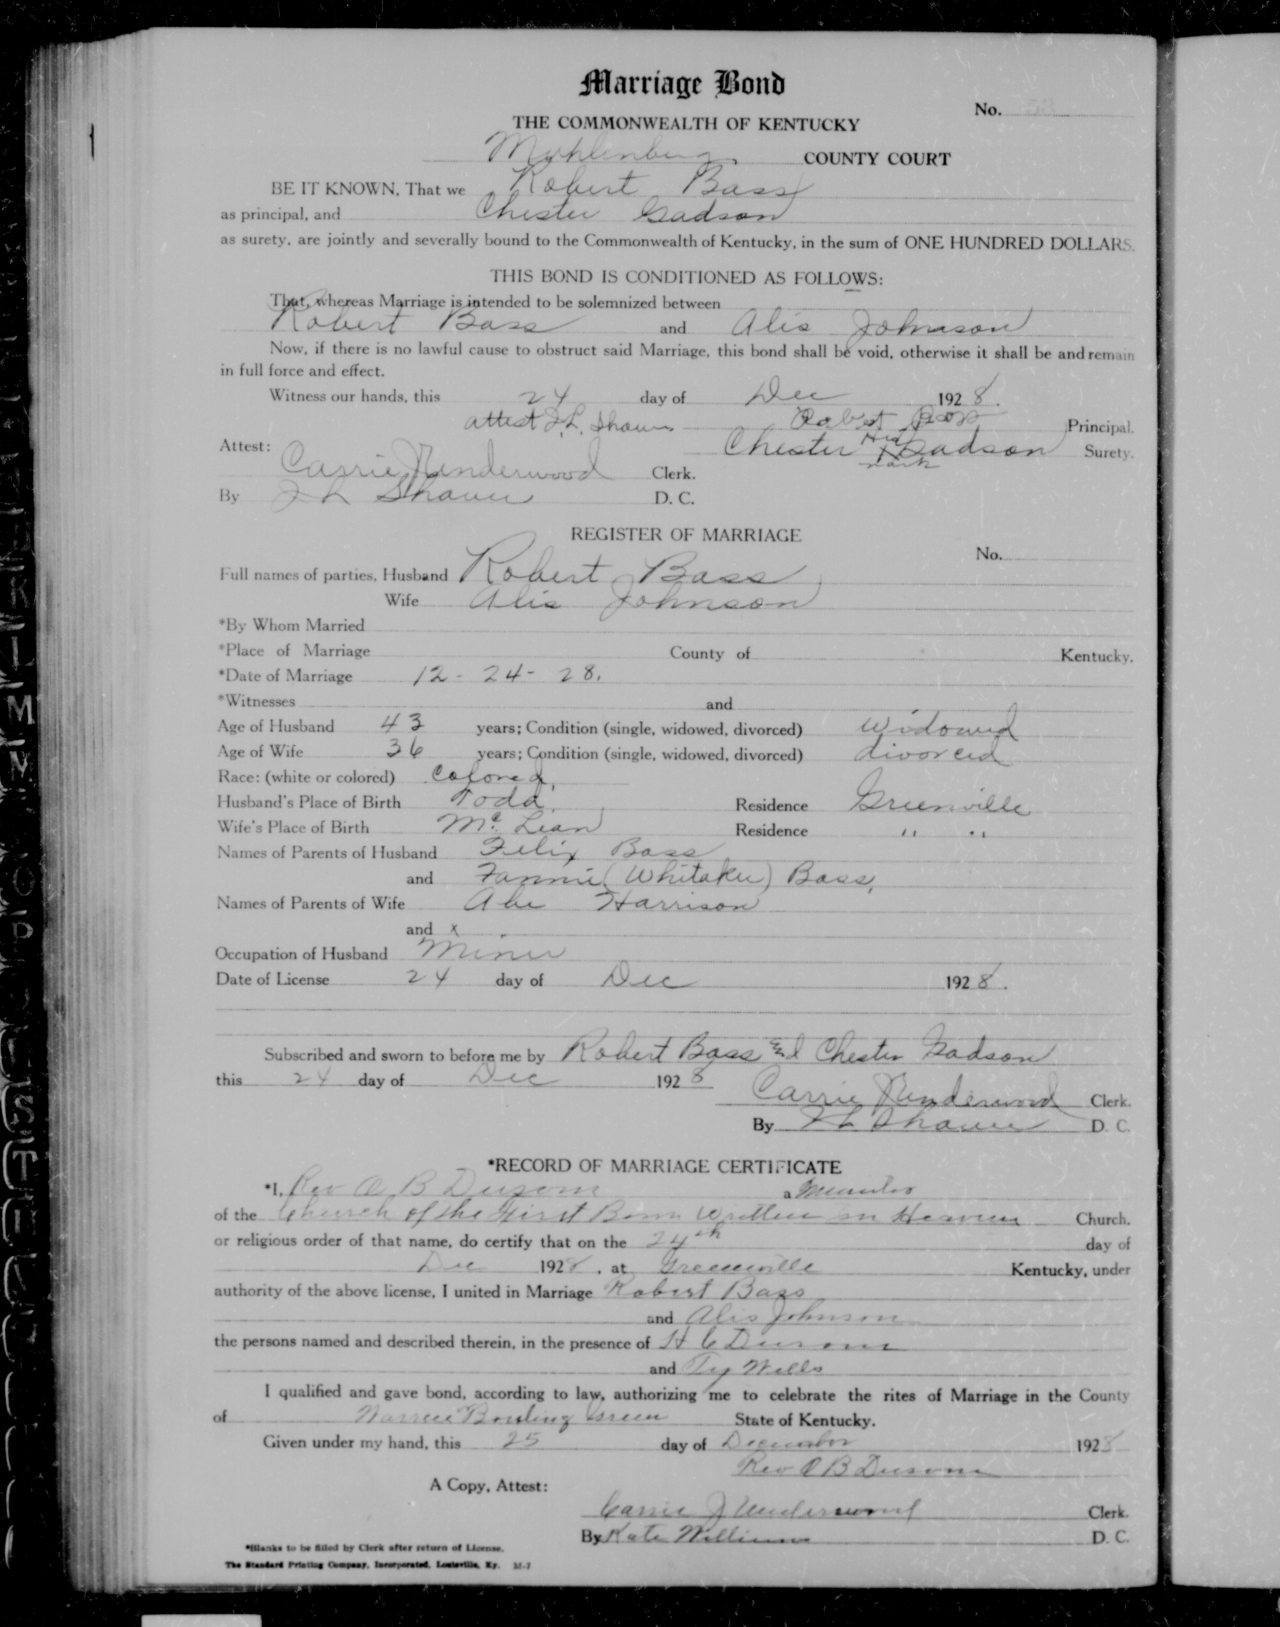 Marriage Bond
No.
THE COMMONWEALTH OF KENTUCKY
Muhlenberg COUNTY COURT
BE IT KNOWN, That we Robert Bass
as principal, and Chester Gadson
as surety, are jointly and severally bound to the Commonwealth of Kentucky, in the sum of ONE HUNDRED DOLLARS.
THIS BOND IS CONDITIONED AS FOLLOWS:
That, whereas Marriage is intended to be solemnized between
Robert Bass and Alis Johnson
Now, if there is no lawful cause to obstruct said Marriage, this bond shall be void, otherwise it shall be and remain
in full force and effect.
Witness our hands, this 24 day of Dec 1928.
attest J. L. Shaver Robert Bass Principal.
Attest: Chester His X mark Gadson Surety.
Carrie J Underwood Clerk.
By J L Shaver D. C.
REGISTER OF MARRIAGE
No.
Full names of parties, Husband Robert Bass
Wife Alis Johnson
*By Whom Married
*Place of Marriage County of Kentucky.
*Date of Marriage 12-24-28.
*Witnesses and
Age of Husband 43 years; Condition (single, widowed, divorced) Widowed
Age of Wife 36 years; Condition (single, widowed, divorced) divorced
Race: (white or colored) Colored.
Husband's Place of Birth Todd. Residence Greenville
Wife's Place of Birth Mc Lean Residence " "
Names of Parents of Husband Felix Bass
and Fannie (Whitaker) Bass,
Names of Parents of Wife Abe Harrison
and x
Occupation of Husband Miner
Date of License 24 day of Dec 1928.
Subscribed and sworn to before me by Robert Bass and Chester Gadson
this 24 day of Dec 1928
Carrie J Underwood Clerk.
By J L Shaver D. C.
*RECORD OF MARRIAGE CERTIFICATE
*I, Rev O B a Minister
of the Church of the First Born Written in Heaven Church.
or religious order of that name, do certify that on the 24th day of
Dec 1928, at Greenville Kentucky, under
authority of the above license, I united in Marriage Robert Bass
and Alis Johnson
the persons named and described therein, in the presence of H C
and Wells
I qualified and gave bond, according to law, authorizing me to celebrate the rites of Marriage in the County
of Warren Bowling Green State of Kentucky.
Given under my hand, this 25 day of December 1928
Rev O B
A Copy, Attest:
Carrie J Underwood Clerk.
By Kate Williams D. C.
*Blanks to be filled by Clerk after return of License.
The Standard Printing Company, Incorporated, Louisville, Ky. M-7